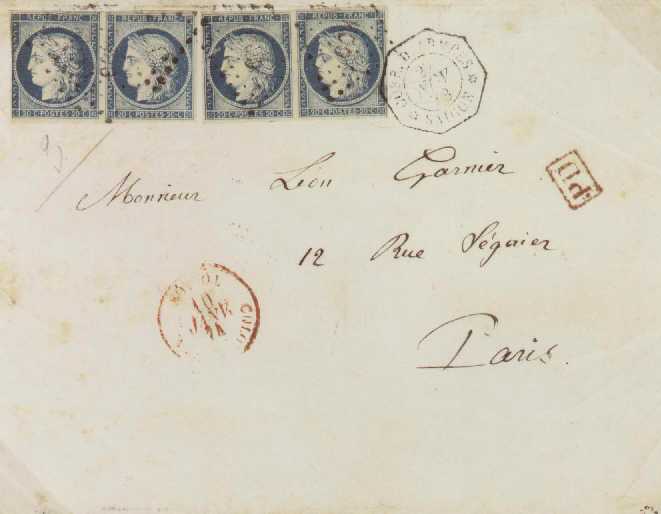 REPUB. FRANC. REPUB. FRANC. REPUB. FRANC. REPUB. FRANC.
20·C·POSTES·20·C 20·C·POSTES·20·C 20·C·POSTES·20·C 20·C·POSTES·20·C
CORR. D. ARMÉES
SAIGON
PD
Monsieur Léon Garnier
12 Rue Séguier
Paris.
10
JANV
74